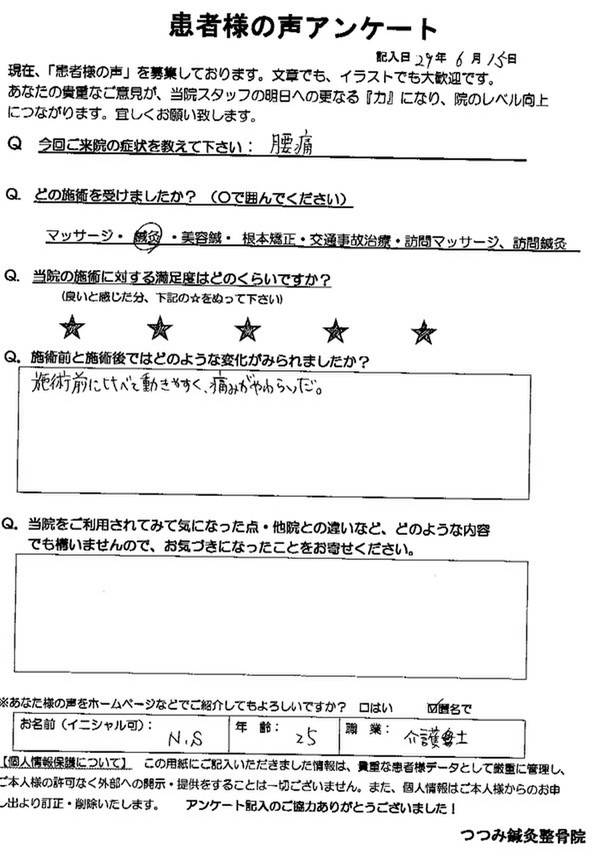 患者様の声アンケート
記入日 29年 6月 15日
現在、「患者様の声」を募集しております。文章でも、イラストでも大歓迎です。
あなたの貴重なご意見が、当院スタッフの明日への更なる『力』になり、院のレベル向上
につながります。宜しくお願い致します。
Q 今回ご来院の症状を教えて下さい： 腰痛
Q. どの施術を受けましたか？（〇で囲んでください）
マッサージ・鍼灸・美容鍼・根本矯正・交通事故治療・訪問マッサージ、訪問鍼灸
Q. 当院の施術に対する満足度はどのくらいですか？
（良いと感じた分、下記の☆をぬって下さい）
★ ★ ★ ★ ★
Q. 施術前と施術後ではどのような変化がみられましたか？
施術前に比べて動きやすく、痛みがやわらいだ。
Q. 当院をご利用されてみて気になった点・他院との違いなど、どのような内容
でも構いませんので、お気づきになったことをお寄せください。
※あなた様の声をホームページなどでご紹介してもよろしいですか？ □はい ☑匿名で
お名前（イニシャル可）： N.S 年 齢： 25 職 業： 介護士
【個人情報保護について】 この用紙にご記入いただきました情報は、貴重な患者様データとして厳重に管理し、
ご本人様の許可なく外部への開示・提供をすることは一切ございません。また、個人情報はご本人様からのお申
し出より訂正・削除いたします。 アンケート記入のご協力ありがとうございました！
つつみ鍼灸整骨院